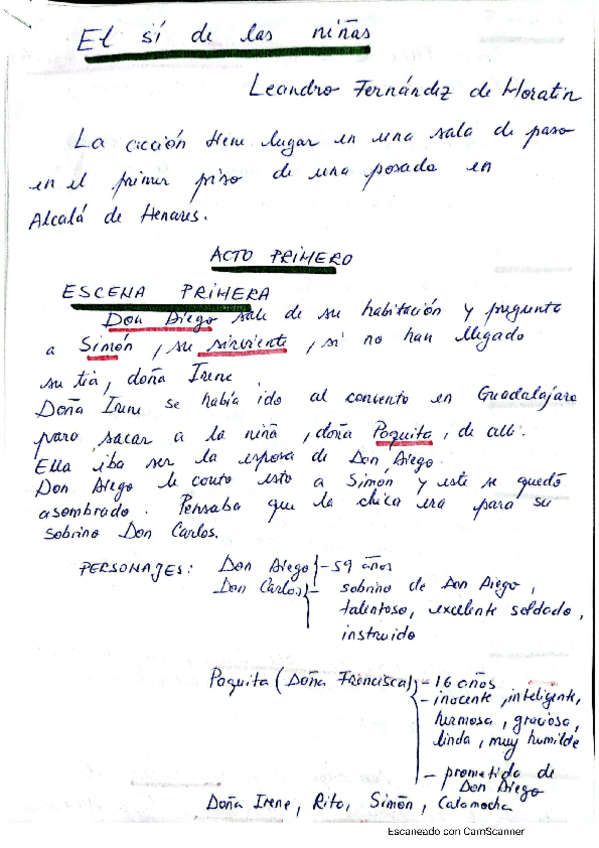 El sí de las niñas
Leandro Fernández de Moratín
La acción tiene lugar en una sala de paso
en el primer piso de una posada en
Alcalá de Henares.
ACTO PRIMERO
ESCENA PRIMERA
Don Diego sale de su habitación y pregunta
a Simón, su sirviente, si no han llegado
su tía, doña Irene.
Doña Irene se había ido al convento en Guadalajara
para sacar a la niña, doña Paquita, de allí.
Ella iba ser la esposa de Don Diego.
Don Diego le conto esto a Simón y este se quedó
asombrado. Pensaba que la chica era para su
sobrino Don Carlos.
PERSONAJES: Don Diego - 59 años
Don Carlos - sobrino de Don Diego,
talentoso, excelente soldado,
instruido
Paquita (Doña Francisca) - 16 años
- inocente, inteligente,
hermosa, graciosa,
linda, muy humilde
- prometida de
Don Diego
Doña Irene, Rita, Simón, Calamocha
Escaneado con CamScanner